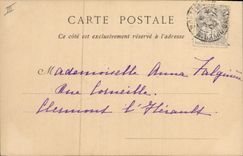 CARTE POSTALE
Ce côté est exclusivement réservé à l'adresse
Mademoiselle Anna
Rue Corneille
Clermont l'Hérault